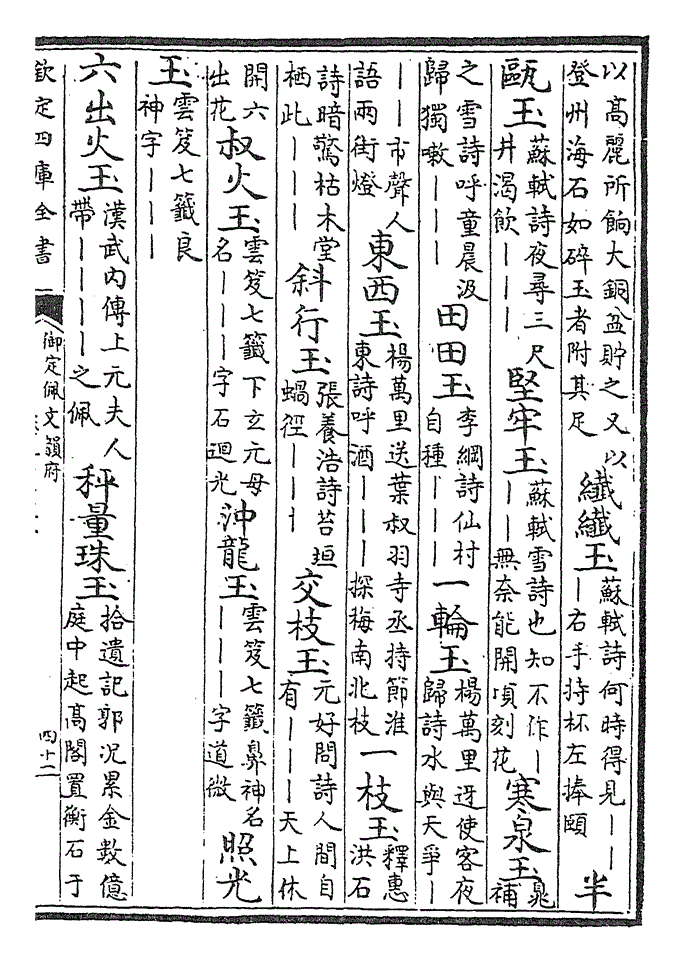 以高麗所餉大銅盆貯之又以
登州海石如碎玉者附其足
纎纎玉
蘇軾詩何時得見丨丨
丨右手持杯左捧頤
半
甌玉
蘇軾詩夜尋三尺
井渴飲丨丨丨
堅牢玉
蘇軾雪詩也知不作丨
丨丨無奈能開頃刻花
寒泉玉
晁
補
之雪詩呼童晨汲
歸獨嗽丨丨丨
田田玉
李綱詩仙村
自種丨丨丨
一輪玉
楊萬里迓使客夜
歸詩水與天爭丨
丨丨市聲人
語兩街燈
東西玉
楊萬里送葉叔羽寺丞持節淮
東詩呼酒丨丨丨探梅南北枝
一枝玉
釋惠
洪石
詩暗驚枯木堂
栖此丨丨丨
斜行玉
張養浩詩苔垣
蝸徑丨丨丨
交枝玉
元好問詩人間自
有丨丨丨天上休
開六
出花
叔火玉
雲笈七籤下玄元母
名丨丨丨字石迴光
沖龍玉
雲笈七籤鼻神名
丨丨丨字道微
照光
玉
雲笈七籤良
神字丨丨丨
六出火玉
漢武内傳上元夫人
帶丨丨丨丨之佩
秤量珠玉
拾遺記郭況累金數億
庭中起高閣置衡石于
欽定四庫全書
御定佩文韻府
四十二